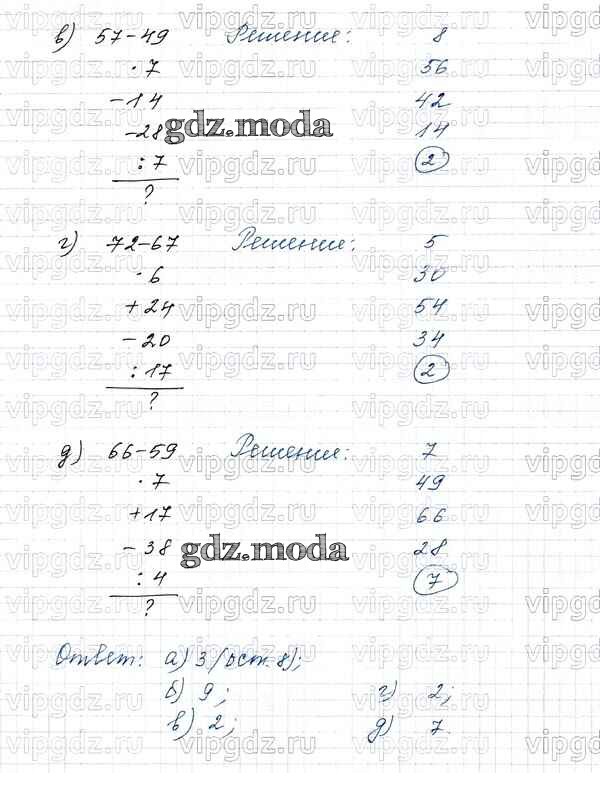 в) 57-49 Решение: 8
·7 56
-14 42
-28 14
:7 2
?
г) 72-67 Решение: 5
·6 30
+24 54
-20 34
:17 2
?
д) 66-59 Решение: 7
·7 49
+17 66
-38 28
:4 7
?
Ответ: а) 3 (ост. 8);
б) 9; г) 2;
в) 2; д) 7.
gdz.moda
gdz.moda
vipgdz.ru